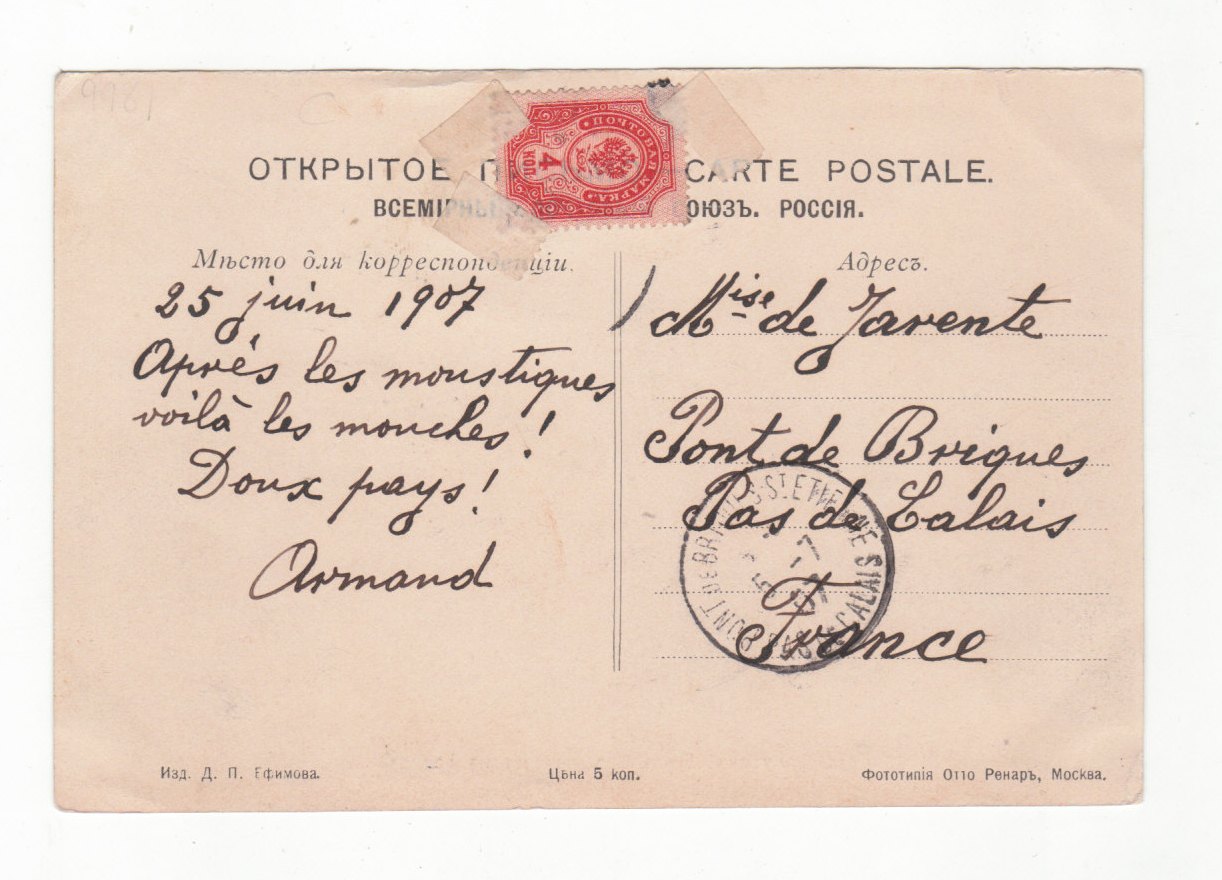 9961
ОТКРЫТОЕ CARTE POSTALE.
ПОЧТОВАЯ МАРКА
4 КОП
РОССІЯ.
Мѣсто для корреспонденціи.
Адресъ.
25 juin 1907
Après les moustiques
voilà les mouches!
Doux pays!
Armand
Mise de Jarente
Pont de Briques
Pas de Calais
France
PONT DE BRIQUES ST ETIENNE
PAS DE CALAIS
Изд. Д. П. Ефимова.
Цѣна 5 коп.
Фототипія Отто Ренаръ, Москва.